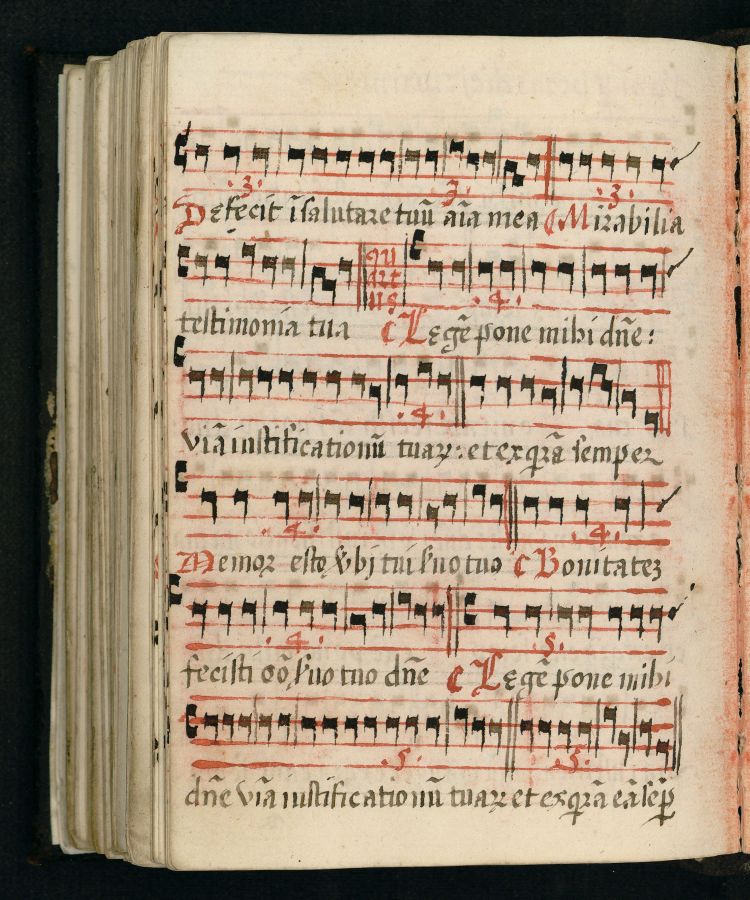 .3. .3. .3.
Defecit ĩ salutare tuũ aĩa mea Mirabilia
qu
art
us .4.
testimonia tua Legẽ pone mihi dñe:
.4.
viã iustificationũ tuaꝝ: et exqrã semper
.4. .4.
Memor esto ỽbj tui suo tuo Bonitatez
.4. .5.
fecisti cõ suo tuo dñe Legẽ pone mihi
.5. .5.
dñe viã iustificationũ tuaꝝ et exqrã eã sẽp